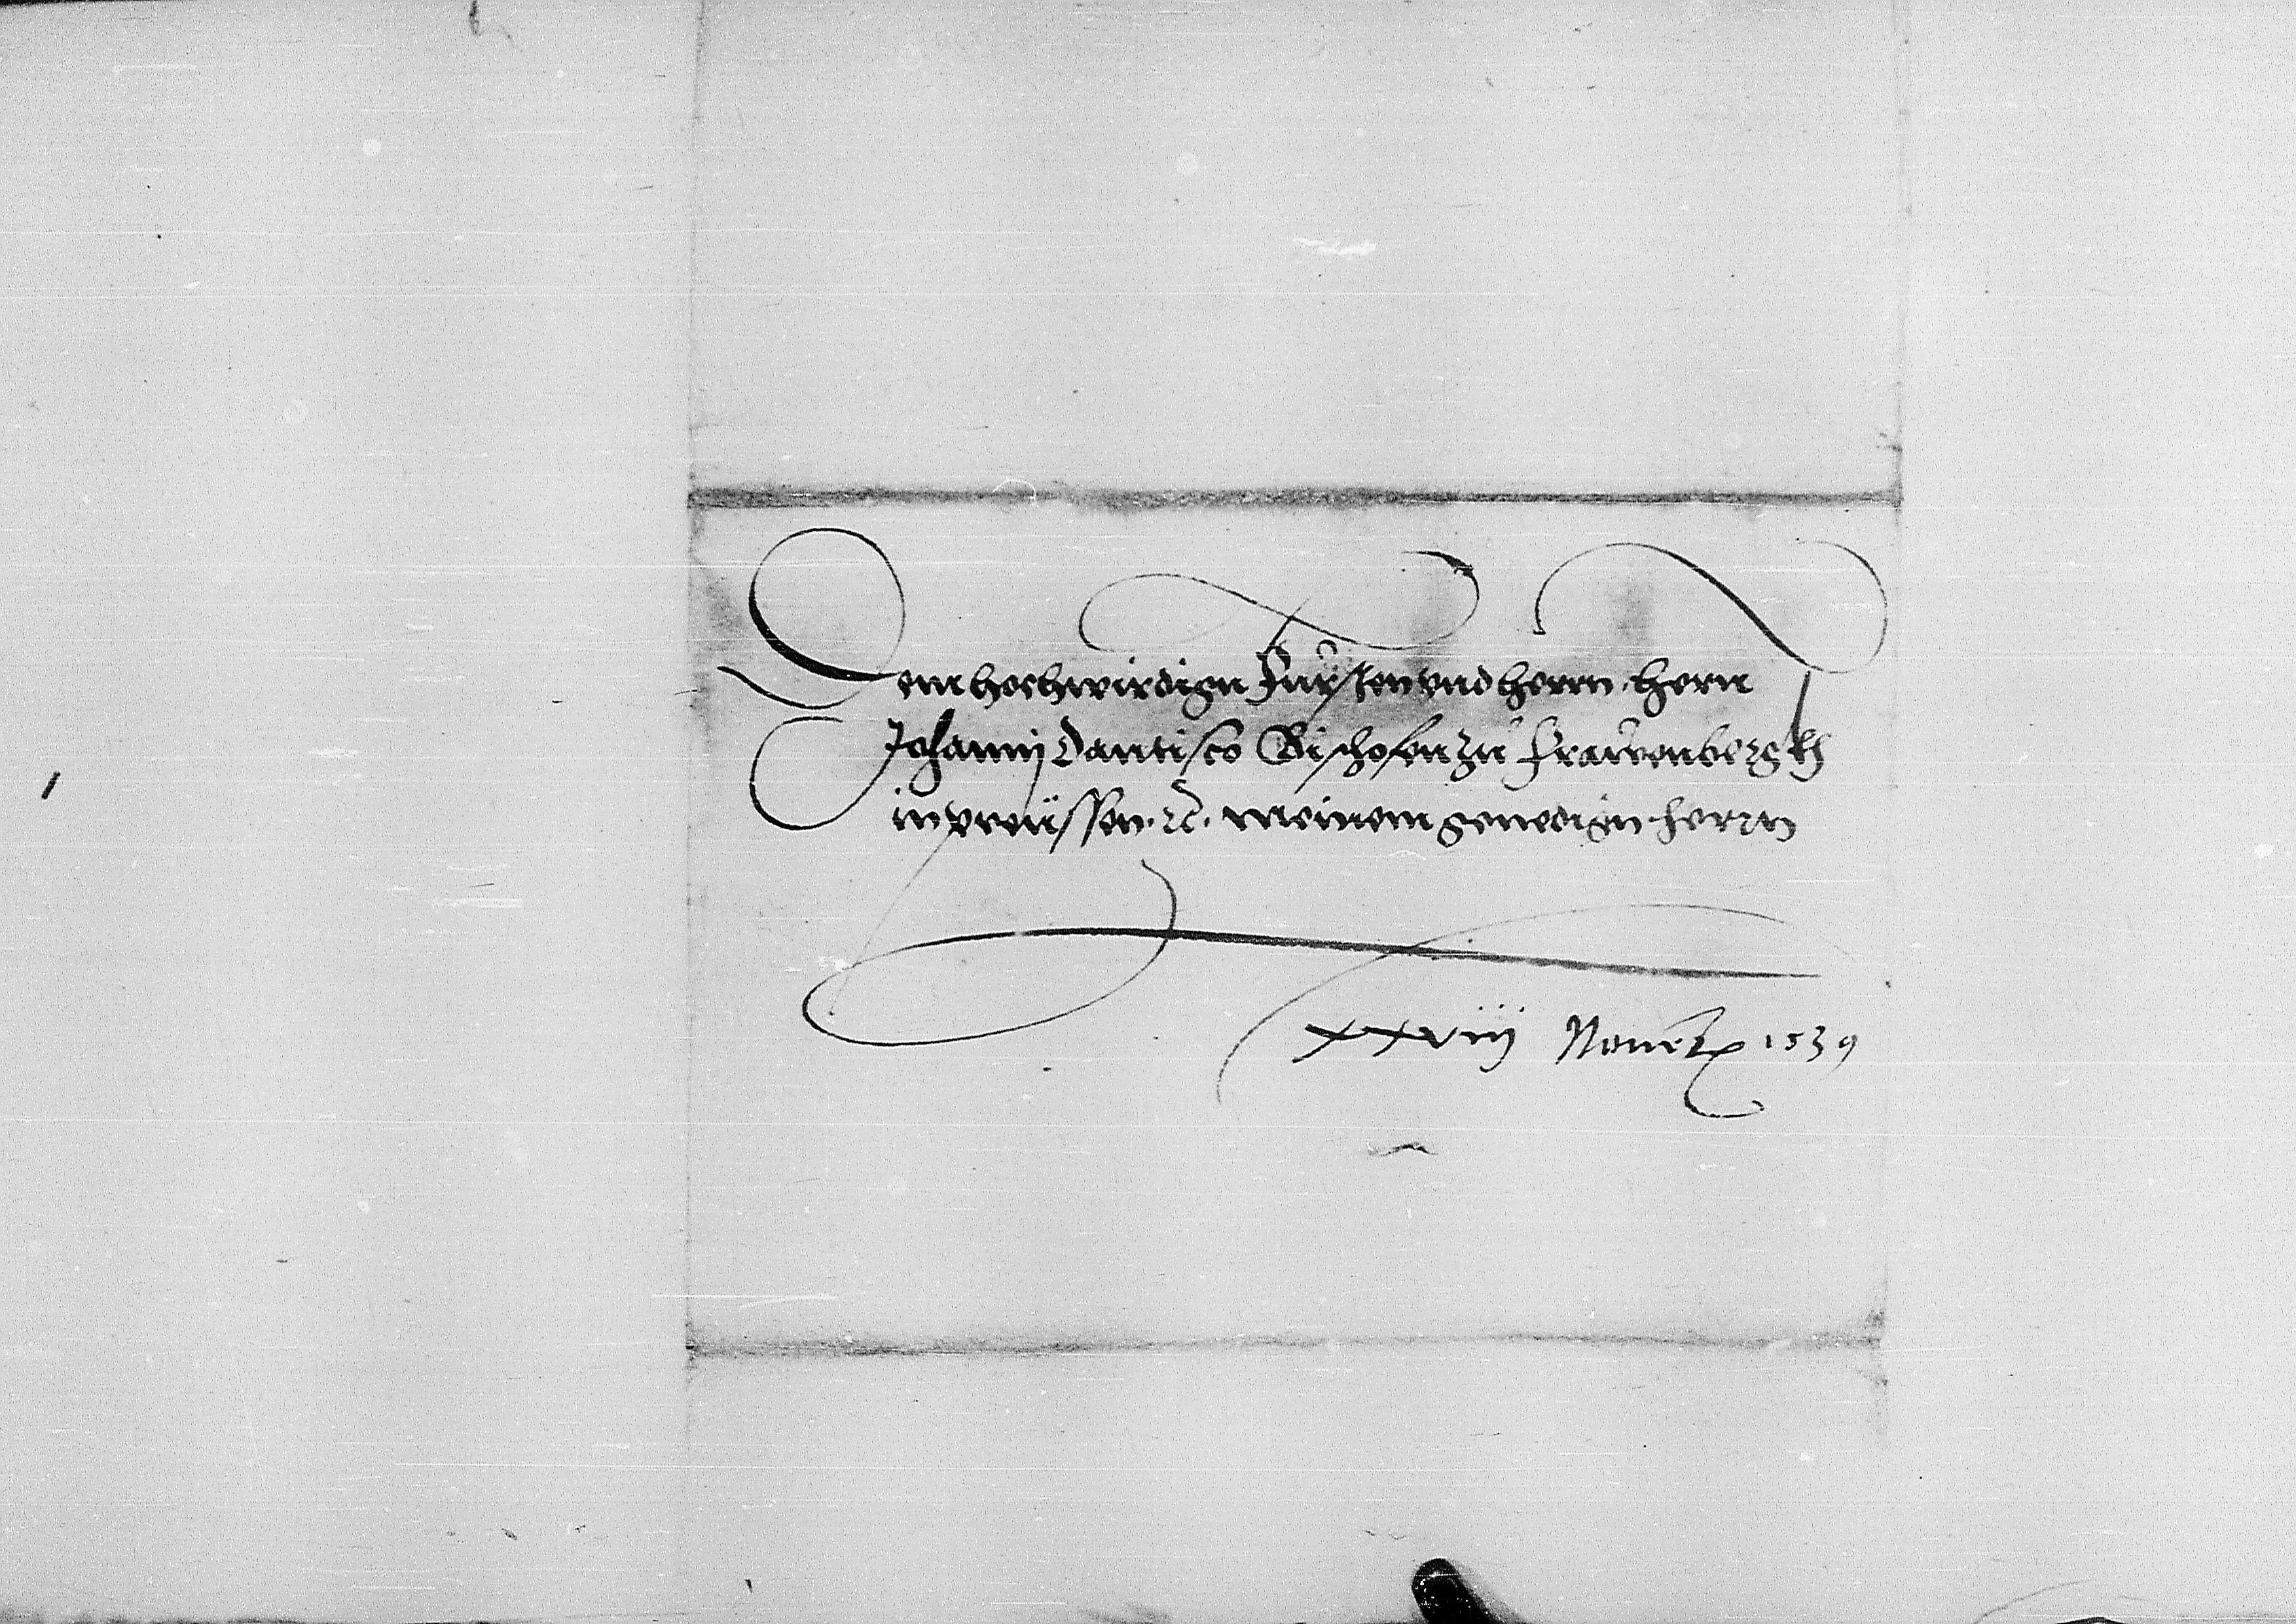 Dem hochwirdign Fursten vnd herrn hern
Johannj Dantisco Bischofen zu frawenbergkh
in preussen ꝛc. meinem genedign herrn
xxviij Nouembr 1539